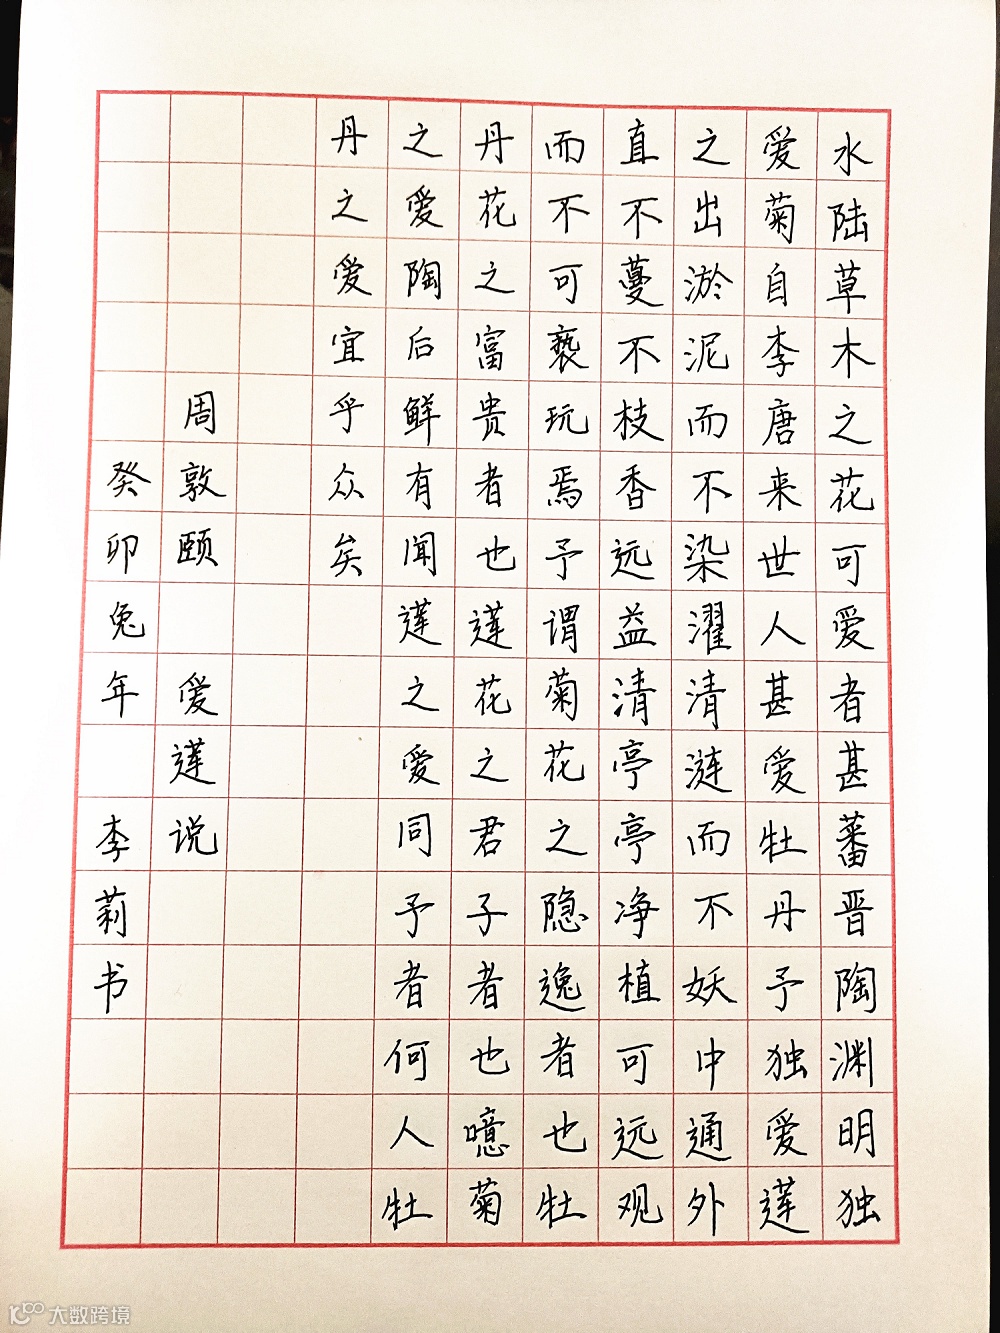 水陆草木之花可爱者甚蕃晋陶渊明独
爱菊自李唐来世人甚爱牡丹予独爱莲
之出淤泥而不染濯清涟而不妖中通外
直不蔓不枝香远益清亭亭净植可远观
而不可亵玩焉予谓菊花之隐逸者也牡
丹花之富贵者也莲花之君子者也噫菊
之爱陶后鲜有闻莲之爱同予者何人牡
丹之爱宜乎众矣
周敦颐 爱莲说
癸卯兔年 李莉书
大数跨境